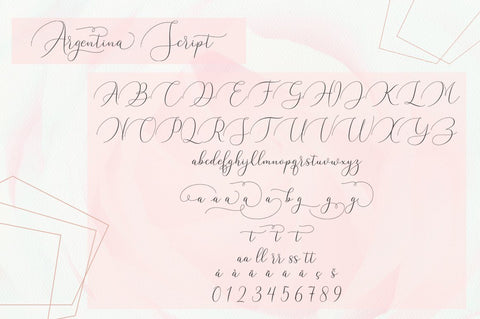 Argentina Script
A B C D E F G H I J K L M
N O P Q R S T U V W X Y Z
abcdefghyllmnopqrstuvwxyz
a a a a a b g g g
t t t
aa ll rr ss tt
0 1 2 3 4 5 6 7 8 9